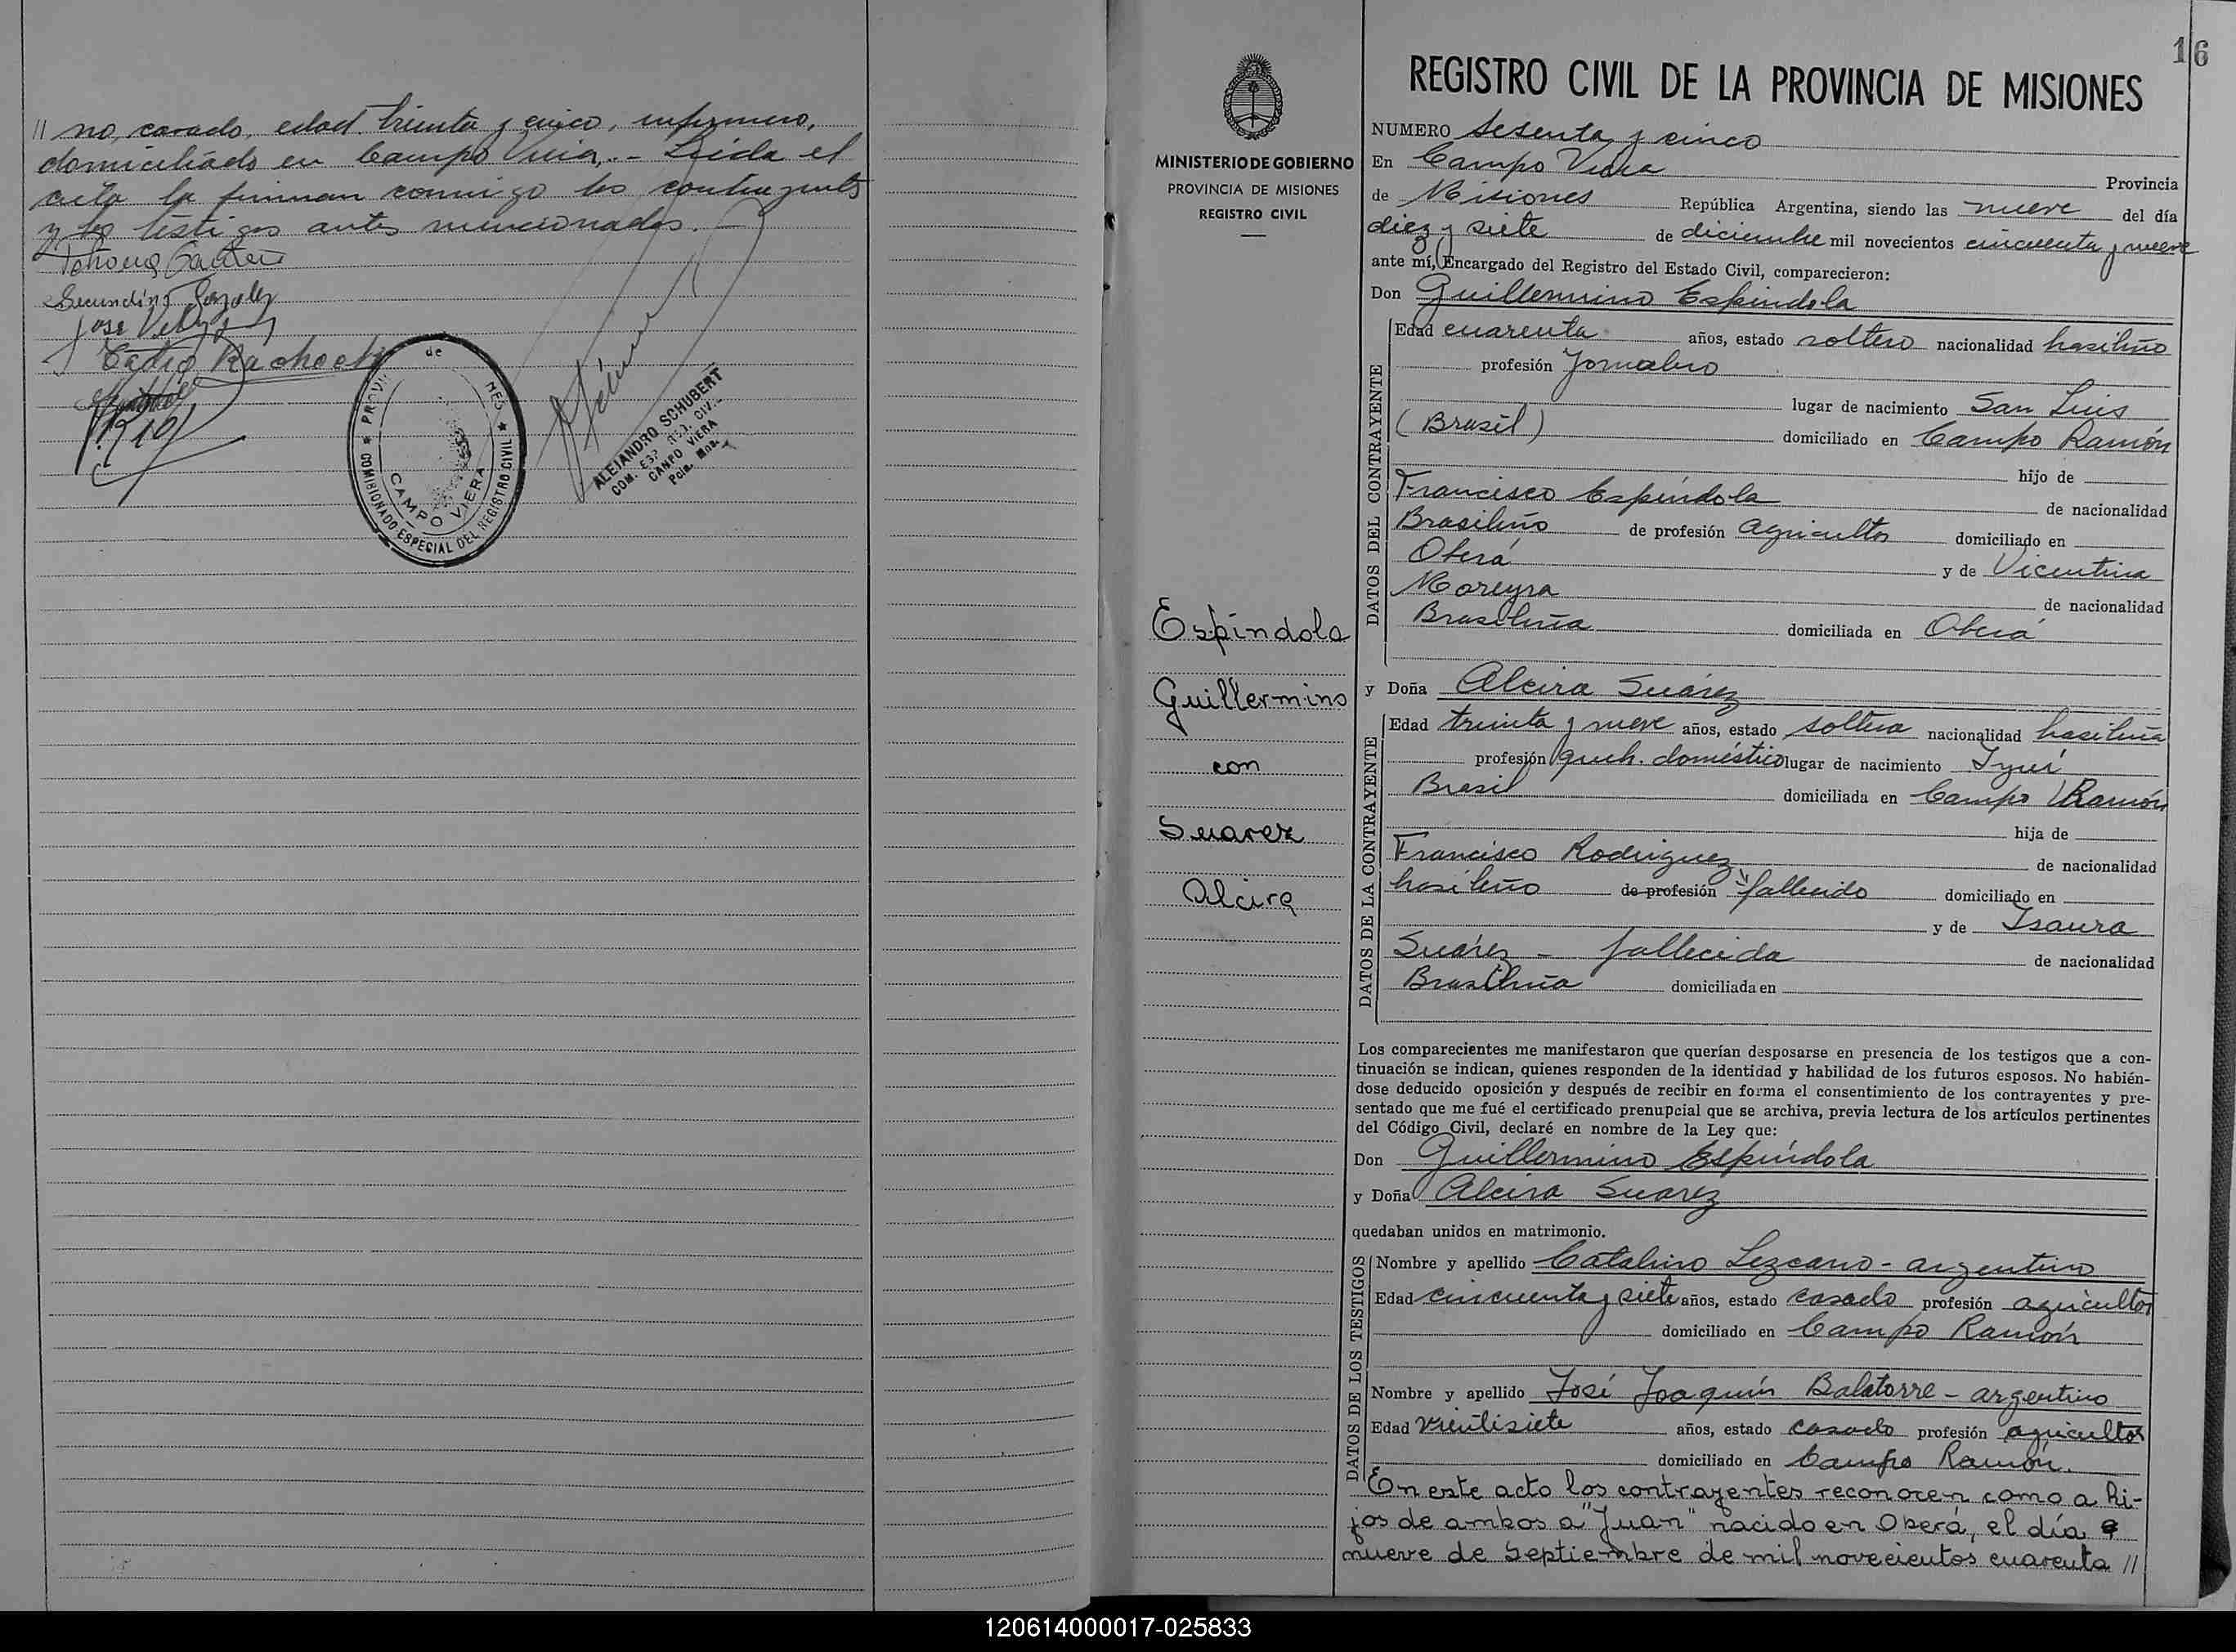 // no, casado, edad treinta y cinco, enfermero,
domiciliado en Campo Viera,.- Leída el
acta la firman conmigo los contrayentes
y los testigos antes mencionados.-
Secundino
José
de
PROVI NES
COMISIONADO ESPECIAL DEL REGISTRO CIVIL
CAMPO VIERA
ALEJANDRO SCHUBERT
COM. ESP REG. CIVIL
CAMPO VIERA
Pcia. Mnes.
16
MINISTERIO DE GOBIERNO
PROVINCIA DE MISIONES
REGISTRO CIVIL
Espíndola
Guillermino
con
Suarez
Alcira
REGISTRO CIVIL DE LA PROVINCIA DE MISIONES
NUMERO Setenta y cinco
En Campo Viera Provincia
de Misiones República Argentina, siendo las nueve del día
diez y siete de diciembre mil novecientos cincuenta y nueve
ante mí, Encargado del Registro del Estado Civil, comparecieron:
Don Guillermino Espíndola
DATOS DEL CONTRAYENTE
Edad cuarenta años, estado soltero nacionalidad brasileño
profesión Jornalero
lugar de nacimiento San Luis
(Brasil) domiciliado en Campo Ramón
hijo de
Francisco Espíndola de nacionalidad
Brasileño de profesión agricultor domiciliado en
Oberá y de Vicentina
Moreyra de nacionalidad
Brasileña domiciliada en Oberá
y Doña Alcira Suárez
DATOS DE LA CONTRAYENTE
Edad treinta y nueve años, estado soltera nacionalidad brasileña
profesión queh. doméstico lugar de nacimiento Iyuí
Brasil domiciliada en Campo Ramón
hija de
Francisco Rodríguez de nacionalidad
brasileño de profesión fallecido domiciliado en
y de Isaura
Suárez - fallecida de nacionalidad
Brasileña domiciliada en
Los comparecientes me manifestaron que querían desposarse en presencia de los testigos que a con-
tinuación se indican, quienes responden de la identidad y habilidad de los futuros esposos. No habién-
dose deducido oposición y después de recibir en forma el consentimiento de los contrayentes y pre-
sentado que me fué el certificado prenupcial que se archiva, previa lectura de los artículos pertinentes
del Código Civil, declaré en nombre de la Ley que:
Don Guillermino Espíndola
y Doña Alcira Suarez
quedaban unidos en matrimonio.
DATOS DE LOS TESTIGOS
Nombre y apellido Catalino Lezcano - argentino
Edad cincuenta y siete años, estado casado profesión agricultor
domiciliado en Campo Ramón
Nombre y apellido José Joaquín Balatorre - argentino
Edad veintisiete años, estado casado profesión agricultor
domiciliado en Campo Ramón.
En este acto los contrayentes reconocen como a hi-
jos de ambos a "Juan" nacido en Oberá, el día
nueve de Septiembre de mil novecientos cuarenta //
120614000017-025833